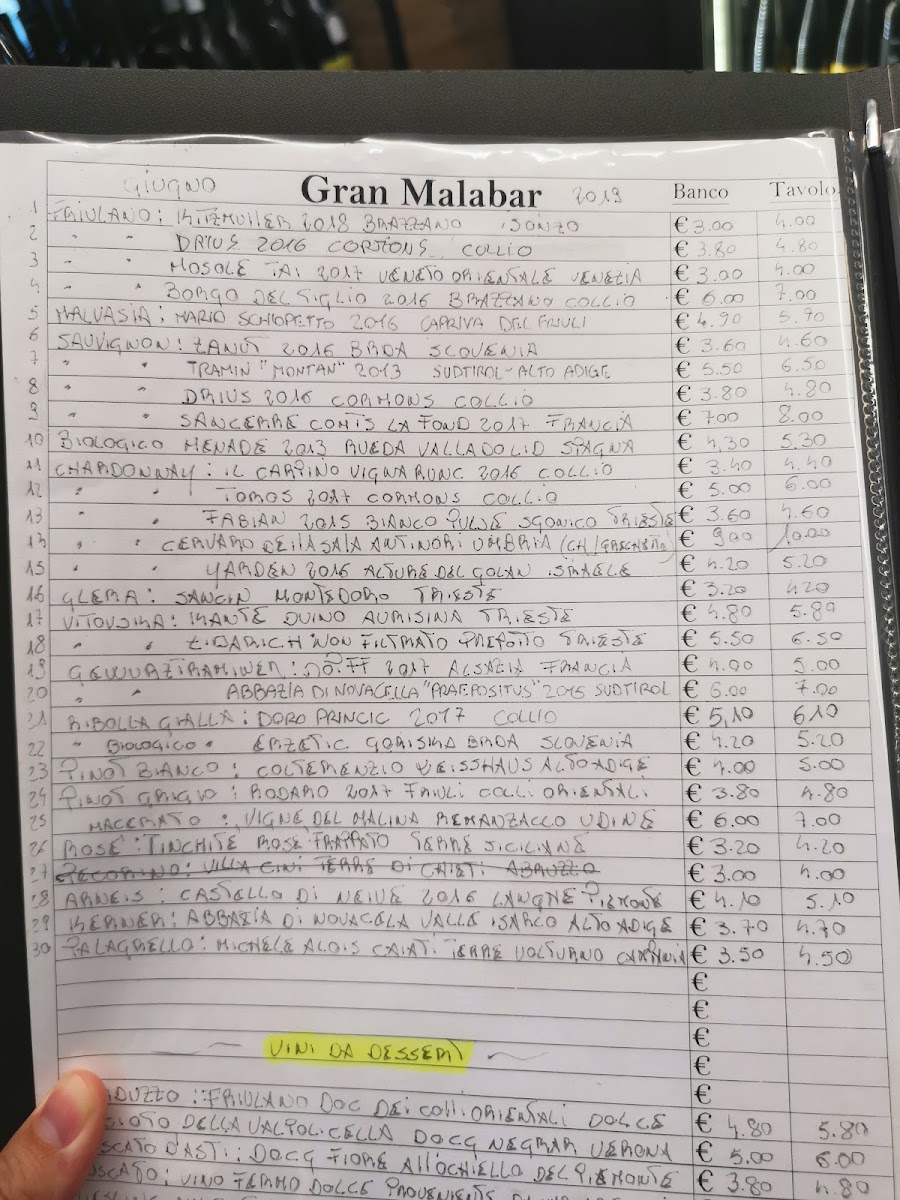 GIUGNO Gran Malabar 2019 Banco Tavolo
1 FRIULANO: KITZMULLER 2018 BRAZZANO ISONZO € 3.00 4.00
2 " " DRIUS 2016 CORMONS COLLIO € 3.80 4.80
3 " " MOSOLE TAI 2017 VENETO ORIENTALE VENEZIA € 3.00 4.00
4 " " BORGO DEL TIGLIO 2016 BRAZZANO COLLIO € 6.00 7.00
5 MALVASIA: MARIO SCHIOPETTO 2016 CAPRIVA DEL FRIULI € 4.90 5.90
6 SAUVIGNON: ZANUT 2016 BRDA SLOVENIA € 3.60 4.60
7 " " TRAMIN "MONTAN" 2013 SUDTIROL-ALTO ADIGE € 5.50 6.50
8 " " DRIUS 2016 CORMONS COLLIO € 3.80 4.80
9 " " SANCERRE COMTS LA FOND 2017 FRANCIA € 7.00 8.00
10 BIOLOGICO MENADE 2013 RUEDA VALLADOLID SPAGNA € 4,30 5.30
11 CHARDONNAY: IL CARPINO VIGNA RUNC 2016 COLLIO € 3.40 4.40
12 " " TOROS 2017 CORMONS COLLIO € 5.00 6.00
13 " " FABIAN 2015 BIANCO SGONICO TRIESTE € 3.60 4.60
13 " " CERVARO DELLA SALA ANTINORI UMBRIA (CH/GRECHETTO) € 9.00 10.00
15 " YARDEN 2016 ALTURE DEL GOLAN ISRAELE € 4.20 5.20
16 GLERA: SANCIN MONTEDORO TRIESTE € 3.20 4.20
17 VITOVSKA: KANTE DUINO AURISINA TRIESTE € 4.80 5.80
18 " ZIDARICH NON FILTRATO PREPOTTO TRIESTE € 5.50 6.50
19 GEWURZTRAMINER: 2017 ALSAZIA FRANCIA € 4.00 5.00
20 " " ABBAZIA DI NOVACELLA "PRAEPOSITUS" 2015 SUDTIROL € 6.00 7.00
21 RIBOLLA GIALLA: DORO PRINCIC 2017 COLLIO € 5,10 6.10
22 " BIOLOGICO " ERZETIC GORISKA BRDA SLOVENIA € 4.20 5.20
23 PINOT BIANCO: COLTERENZIO WEISSHAUS ALTO ADIGE € 4.00 5.00
24 PINOT GRIGIO: RODARO 2017 FRIULI COLLI ORIENTALI € 3.80 4.80
25 MACERATO: VIGNE DEL MALINA REMANZACCO UDINE € 6.00 7.00
26 ROSE: TINCHITE ROSE FRAPPATO TERRE SICILIANE € 3.20 4.20
27 PECORINO: VILLA CINI TERRE DI CHIETI ABRUZZO € 3.00 4.00
28 ARNEIS: CASTELLO DI NEIVE 2016 LANGHE PIEMONTE € 4.10 5.10
29 KERNER: ABBAZIA DI NOVACELA VALLE ISARCO ALTO ADIGE € 3.70 4.70
30 PALAGRELLO: MICHELE ALOIS CAIATI TERRE VOLTURNO CAMPANIA € 3.50 4.50
€
€
€
VINI DA DESSERT €
€
DUZZO: FRIULANO DOC DEI COLLI ORIENTALI DOLCE € 4.80 5.80
CIOTO DELLA VALPOLICELLA DOCG NEGRAR VERONA € 5.00 6.00
SCATO D'ASTI: DOCG FIORE ALL'OCCHIELLO DEL PIEMONTE € 3.80 4.80
OSCATO: VINO FERMO DOLCE PROVENIENTE